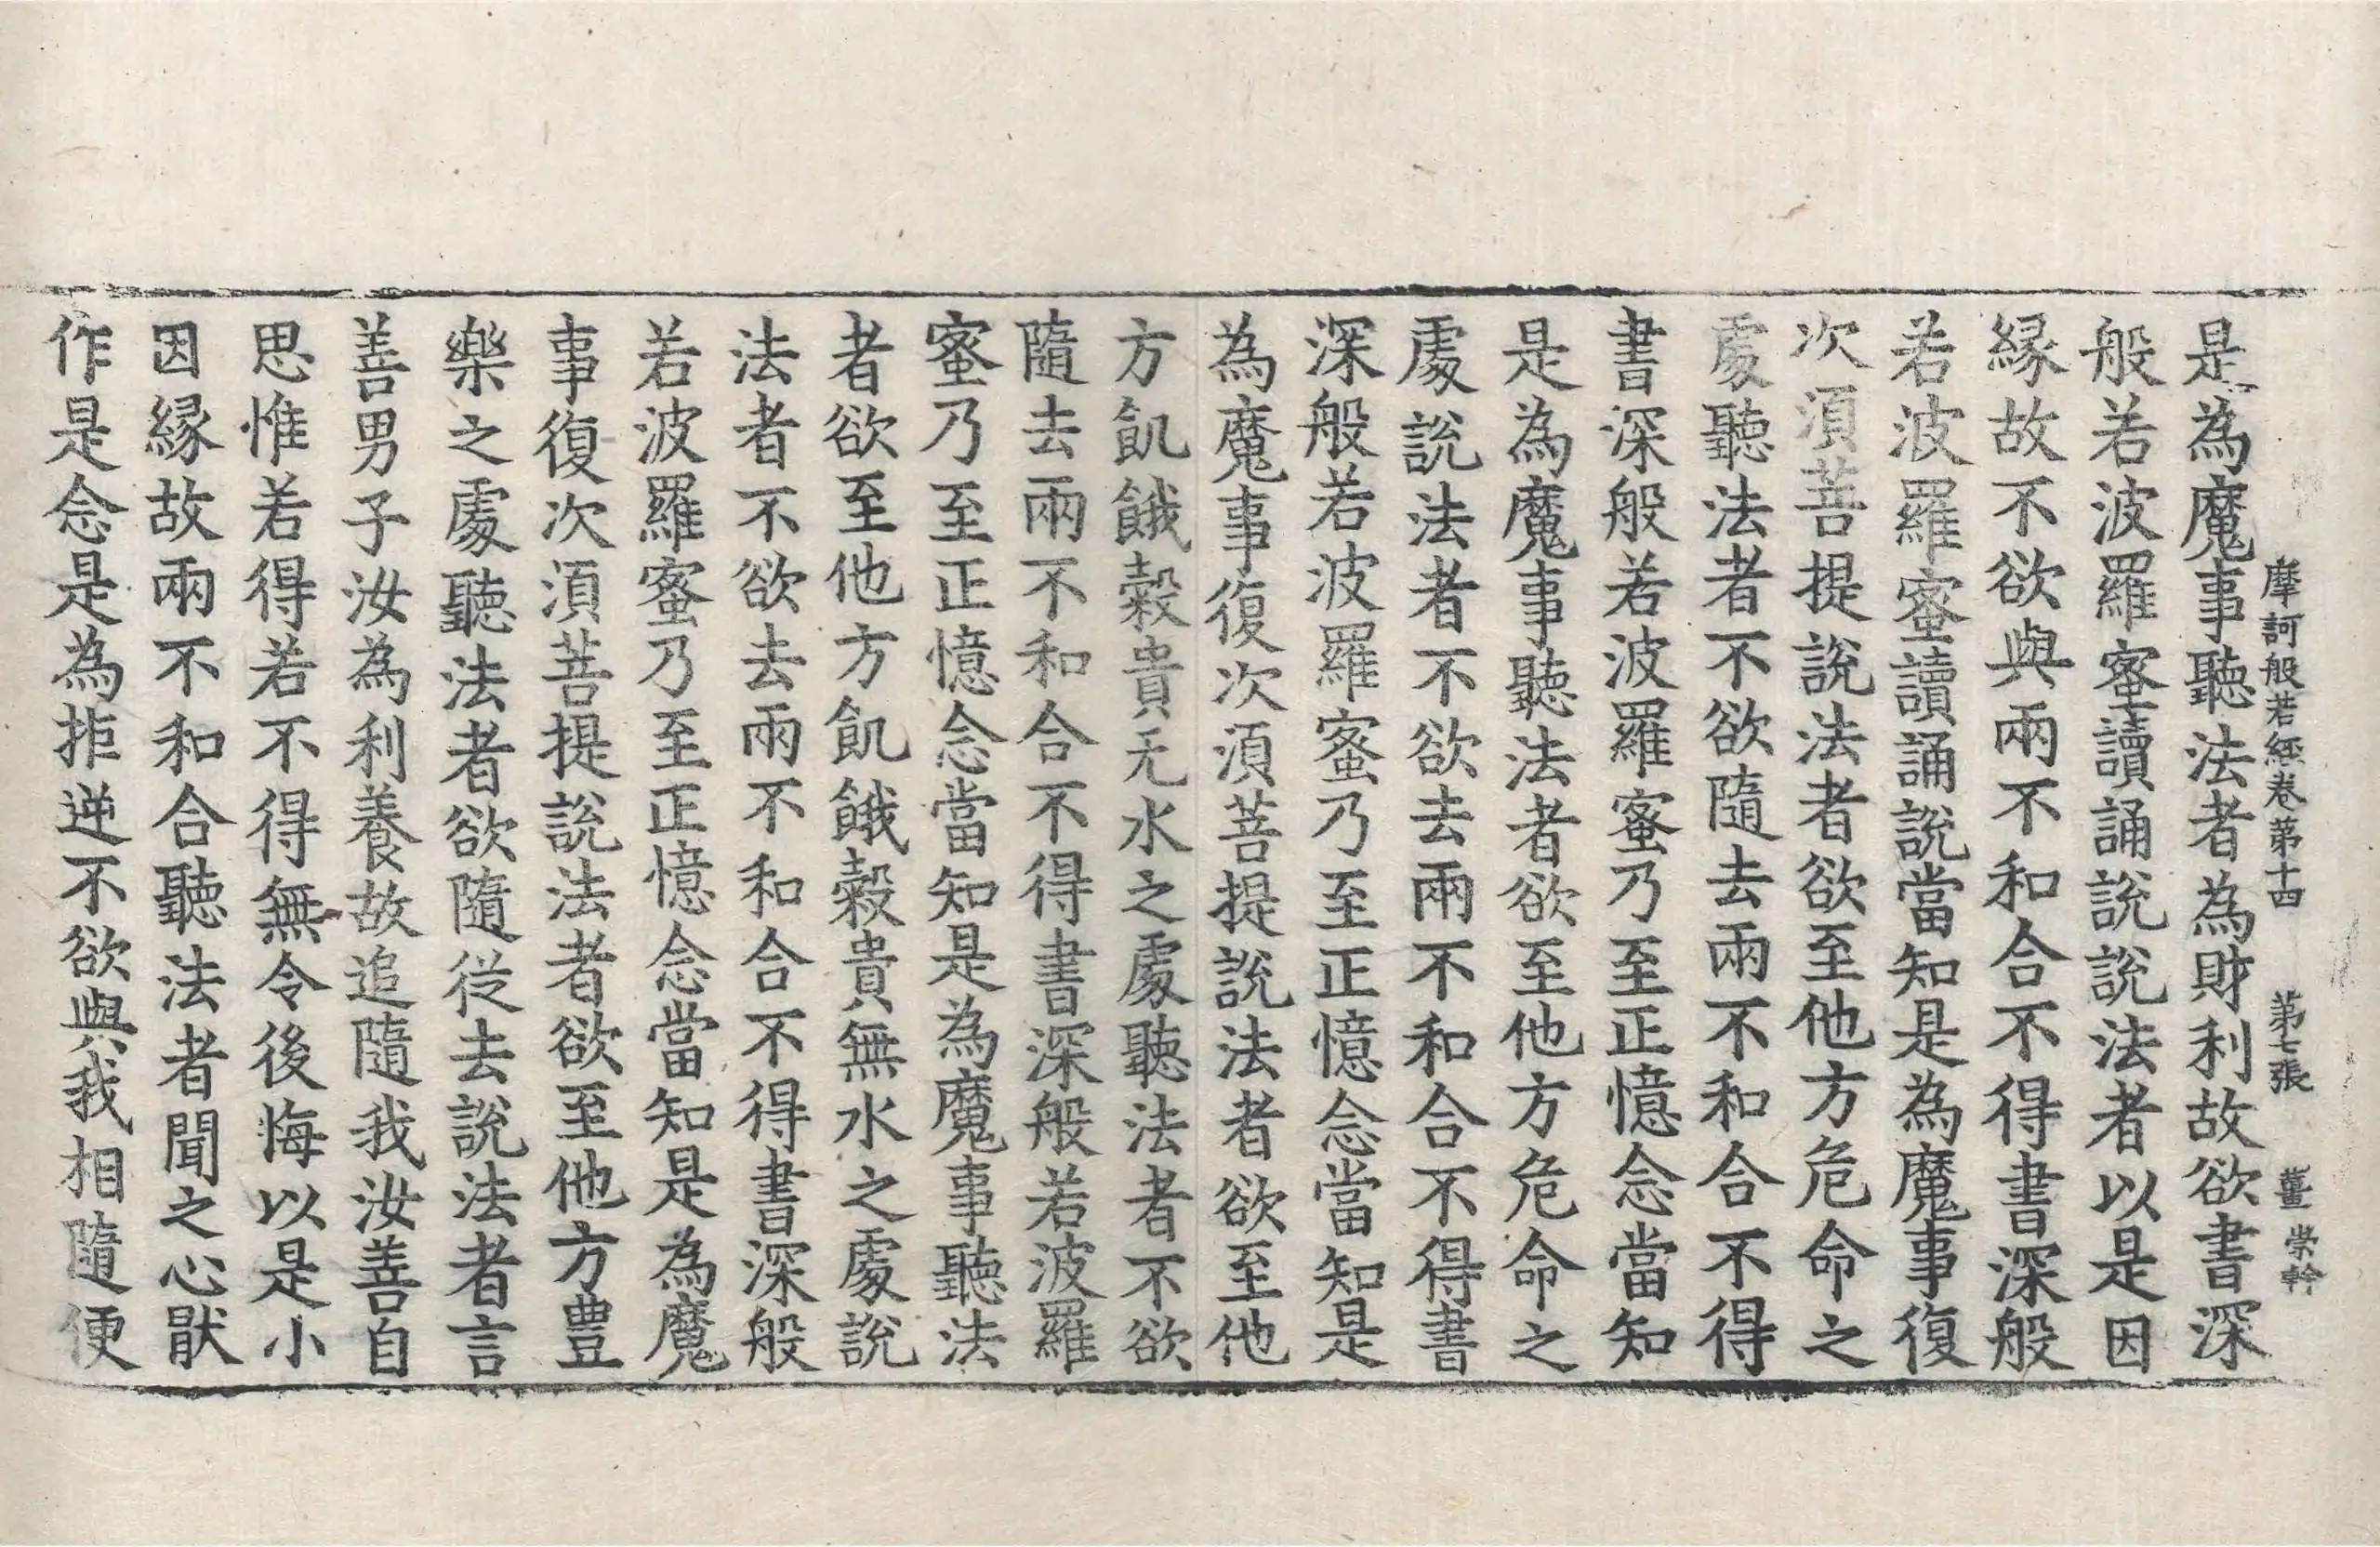 摩訶般若經卷第十四 第七張 薑 崇幹
是為魔事聽法者為財利故欲書深
般若波羅蜜讀誦說說法者以是因
緣故不欲與兩不和合不得書深般
若波羅蜜讀誦說當知是為魔事復
次湏菩提說法者欲至他方危命之
處聽法者不欲隨去兩不和合不得
書深般若波羅蜜乃至正憶念當知
是為魔事聽法者欲至他方危命之
處說法者不欲去兩不和合不得書
深般若波羅蜜乃至正憶念當知是
為魔事復次湏菩提說法者欲至他
方飢餓糓貴无水之處聽法者不欲
隨去兩不和合不得書深般若波羅
蜜乃至正憶念當知是為魔事聽法
者欲至他方飢餓糓貴無水之處說
法者不欲去兩不和合不得書深般
若波羅蜜乃至正憶念當知是為魔
事復次湏菩提說法者欲至他方豊
樂之處聽法者欲隨從去說法者言
善男子汝為利養故追隨我汝善自
思惟若得若不得無令後悔以是小
因緣故兩不和合聽法者聞之心猒
作是念是為拒逆不欲與我相隨便